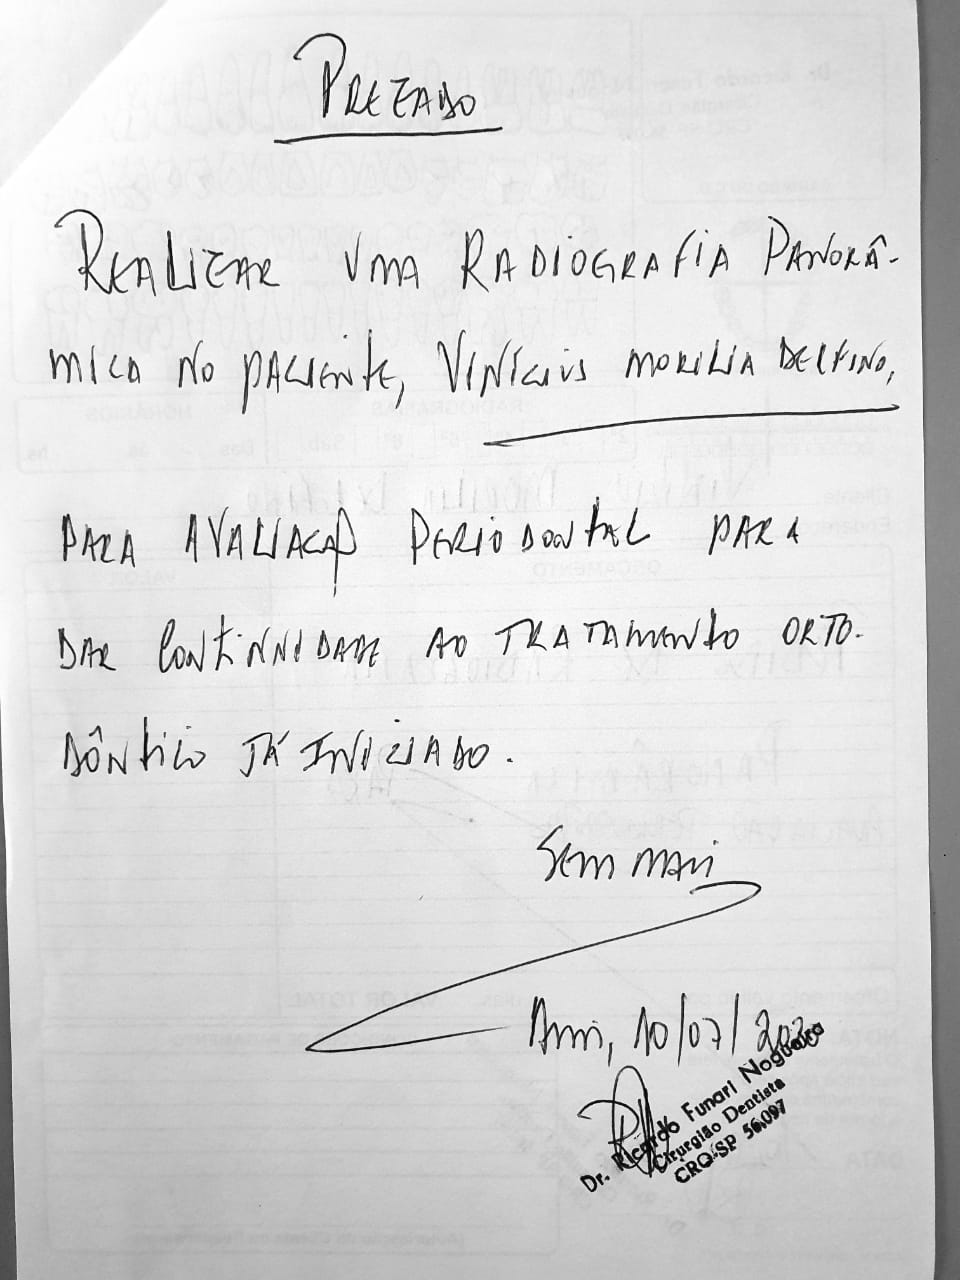 PREZADO
REALIZAR UMA RADIOGRAFIA PANORÂ-
MICA NO PACIENTE, VINÍCIUS MORILIA DELFINO,
PARA AVALIAÇÃO PERIODONTAL PARA
DAR CONTINUIDADE AO TRATAMENTO ORTO-
DÔNTICO JÁ INICIADO.
SEM MAIS
10/07/2020
Dr. Ricardo Funari Nogueira
Cirurgião Dentista
CRO-SP 56.097